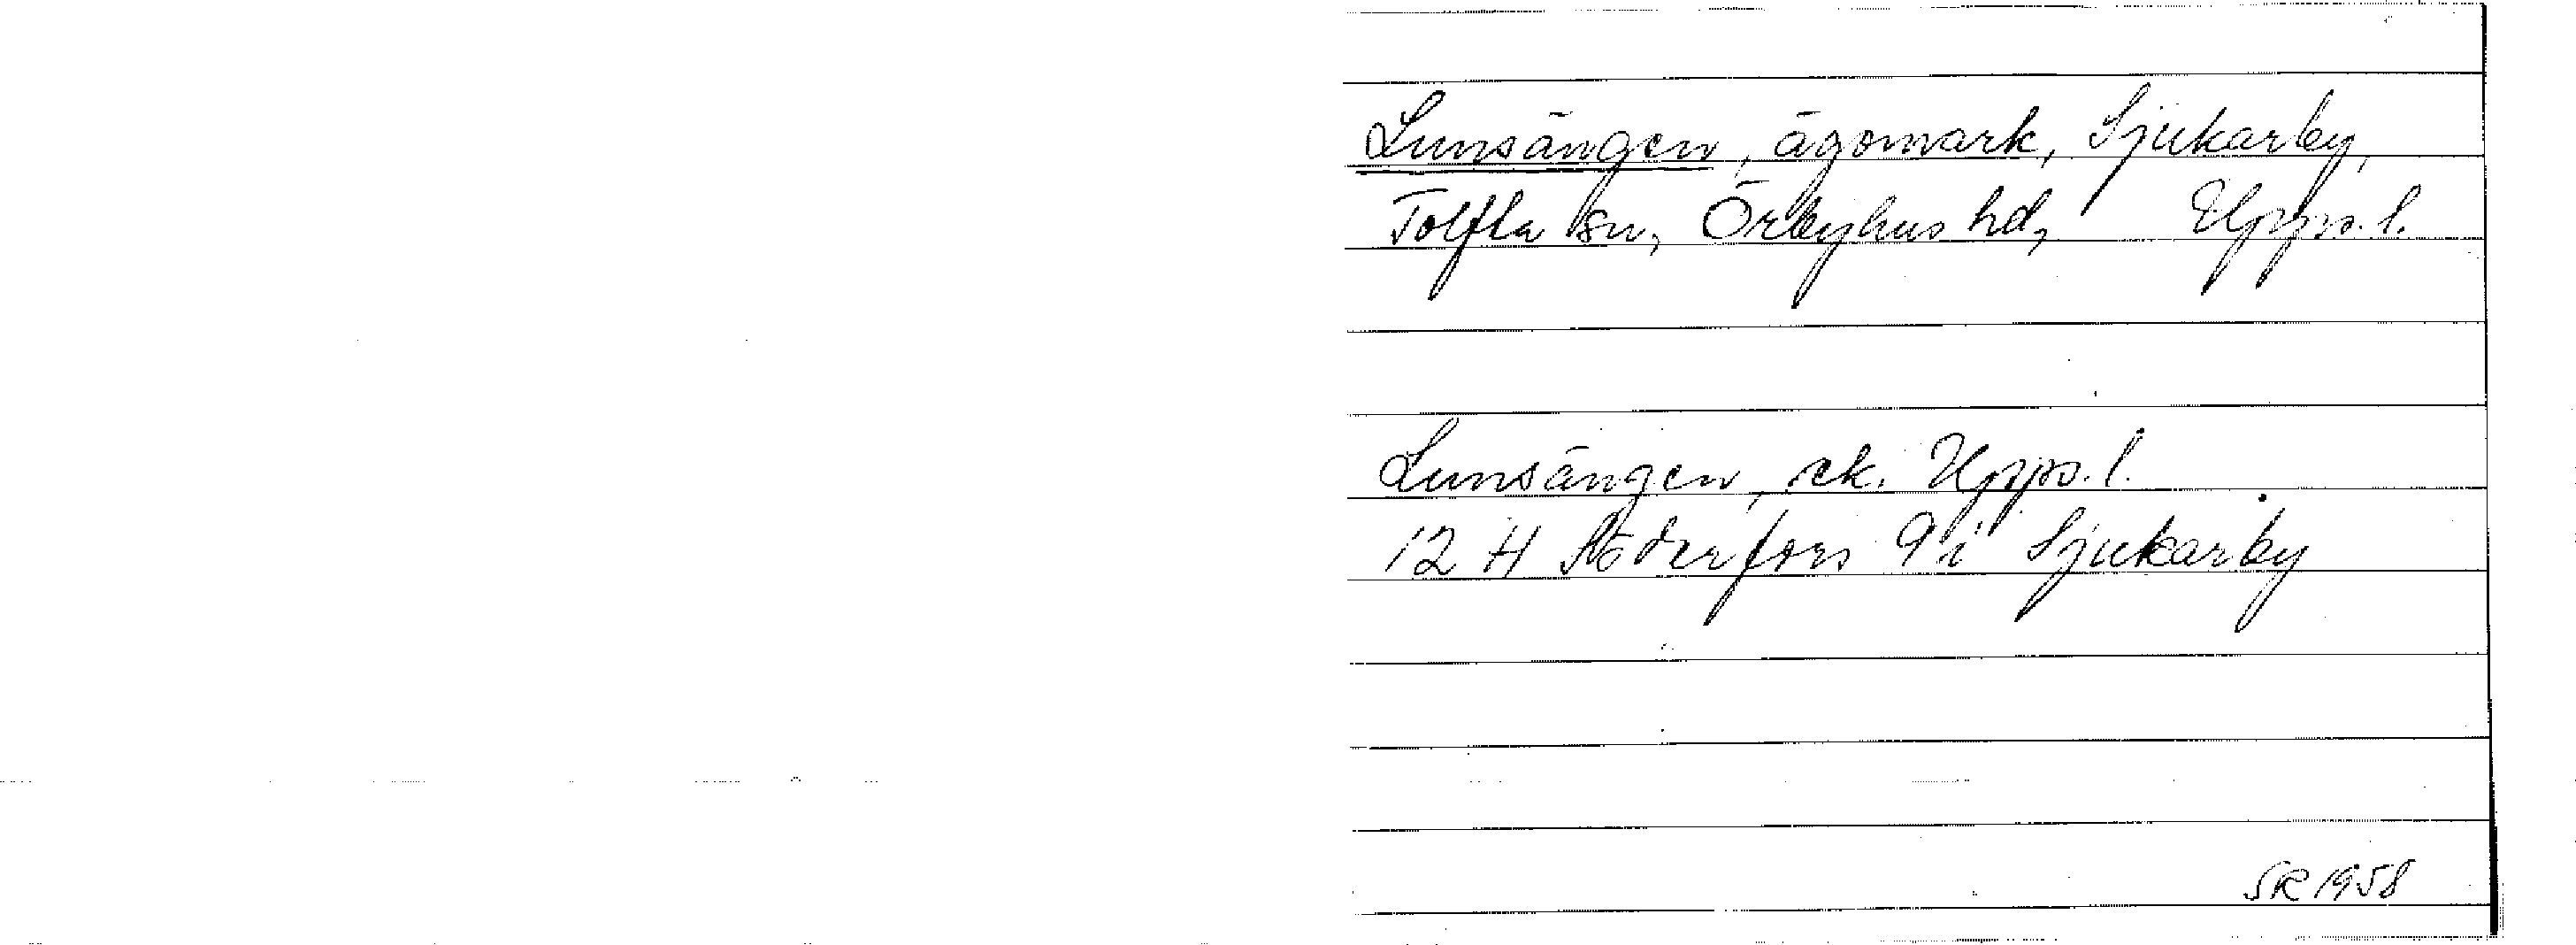 Lunsängen, ägomark, Sjukarby,
Tolfta sn, Örbyhus hd, Upps. l.
Lunsängen, ek. Upps. l.
12 H Söderfors 9 i Sjukarby
SR 1958